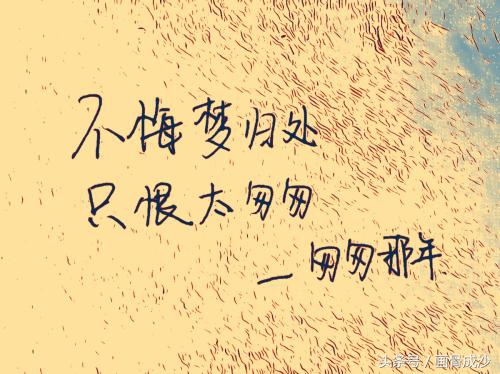 不悔梦归处
只恨太匆匆
—匆匆那年
头条号/画骨成沙